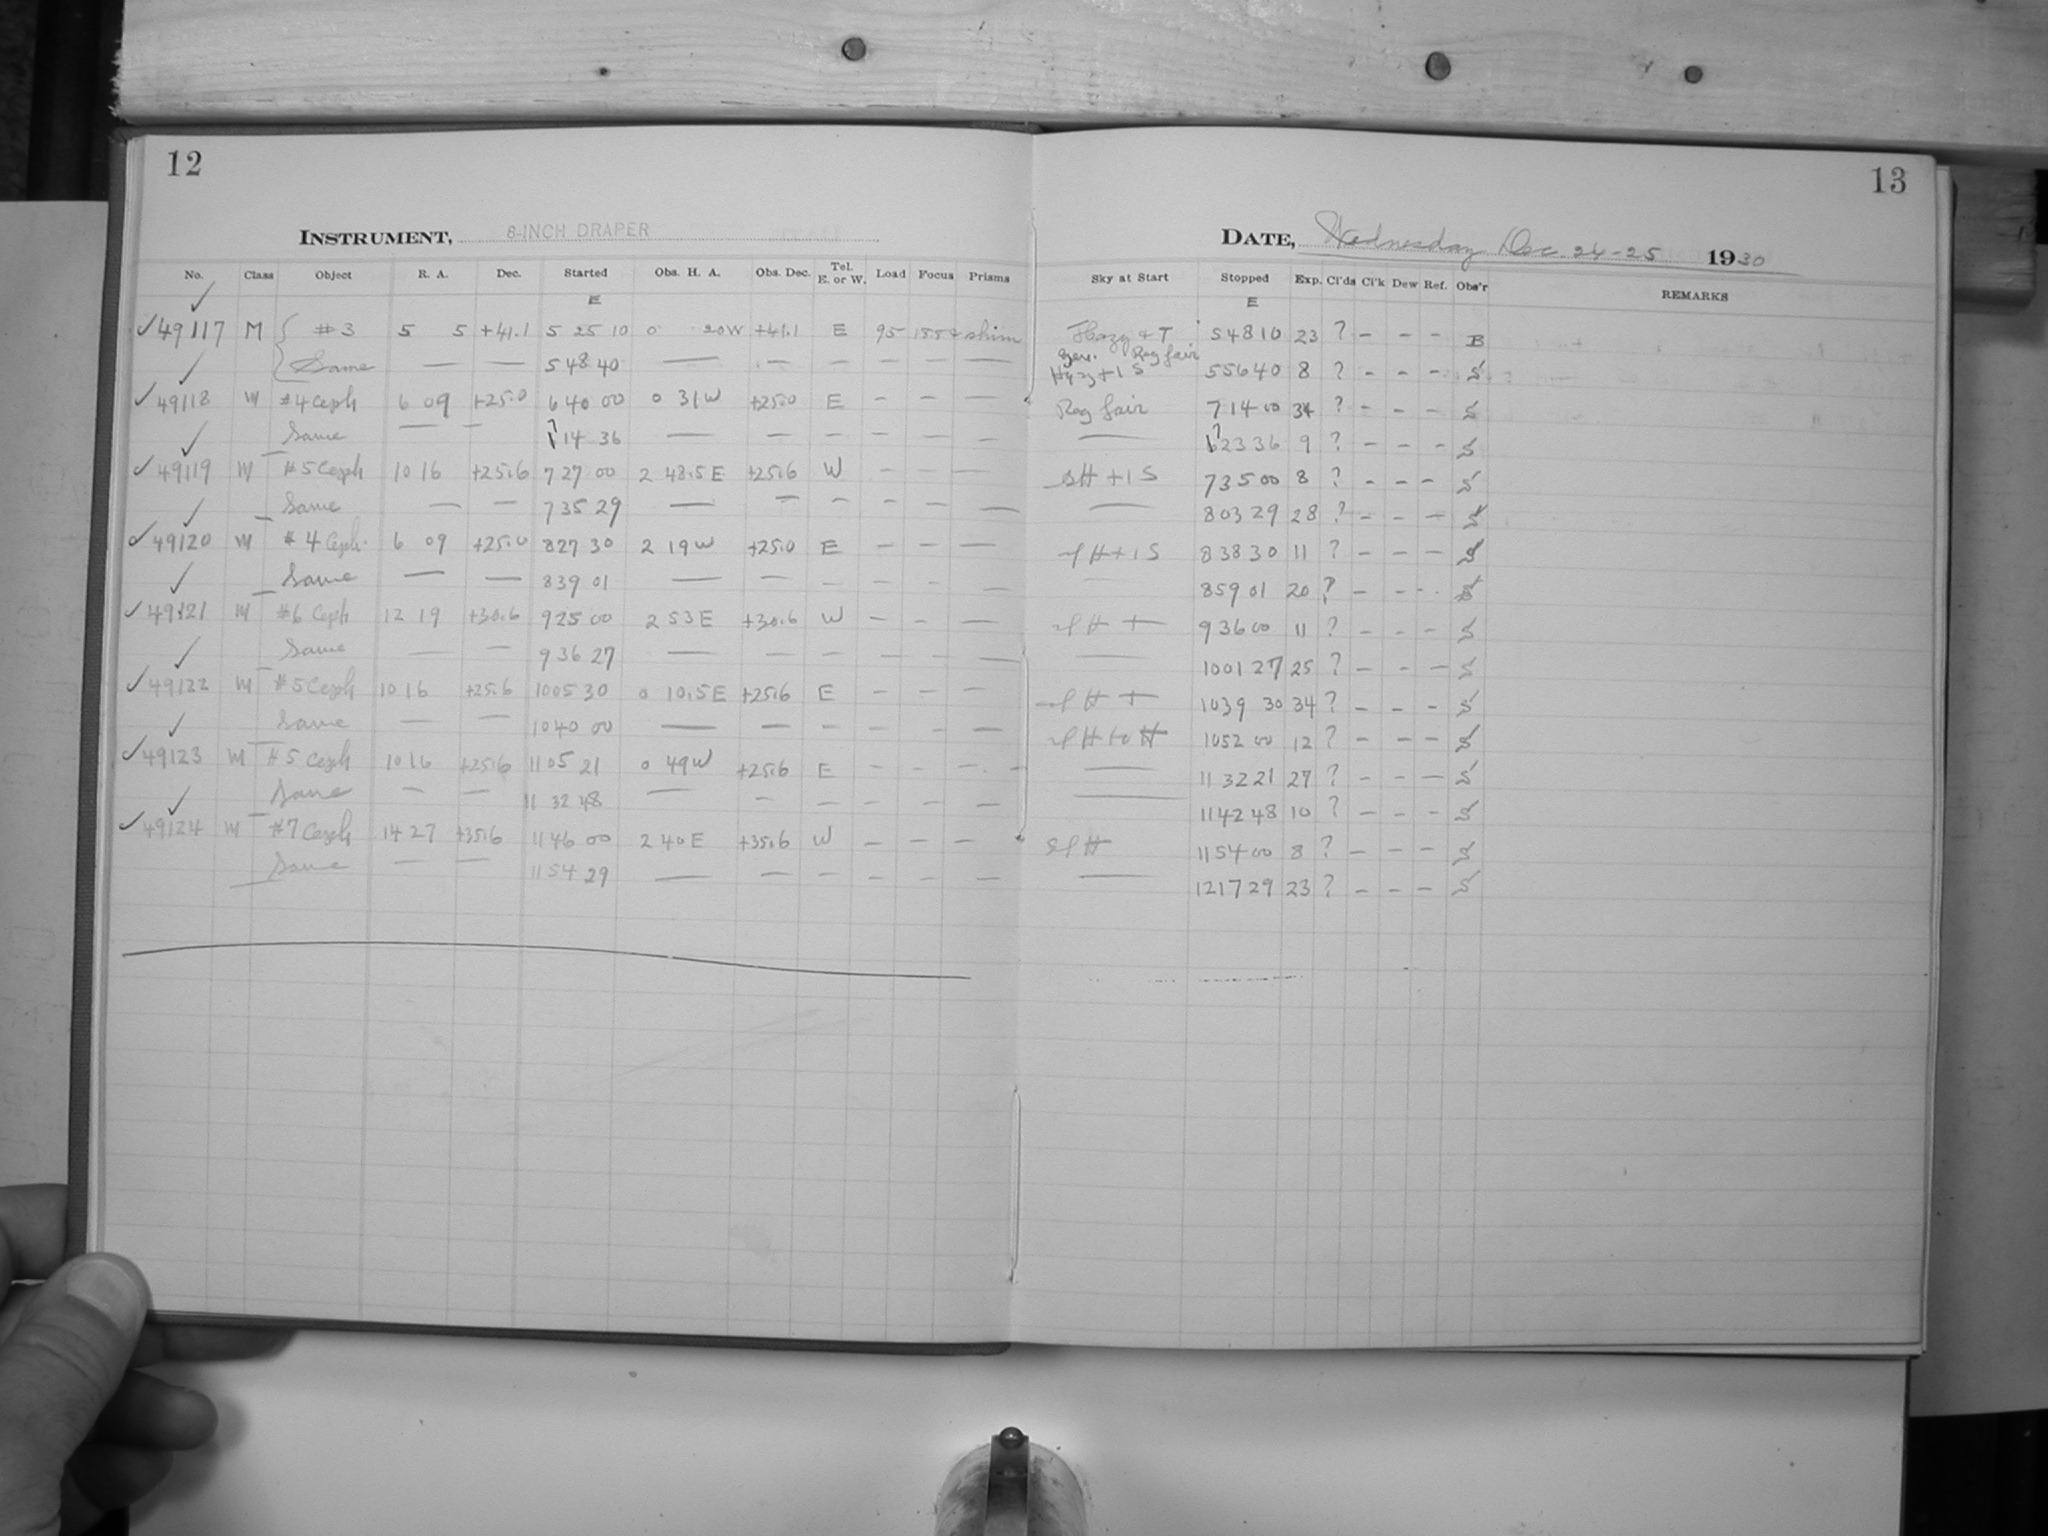 12
INSTRUMENT, 8-INCH DRAPER
No. Class Object R. A. Dec. Started Obs. H. A. Obs. Dec. Tel. E. or W. Load Focus Prisms
E
✓49117 M { #3 5 5 +41.1 5 25 10 0 20W +41.1 E 95
Same — — 5 48 40 — — — — — —
✓49118 M #4 Ceph 6 09 +25.0 6 40 00 0 31W +25.0 E - - -
Same — — 7 14 36 — — — — — —
✓49119 M #5 Ceph 10 16 +25.6 7 27 00 2 48.5E +25.6 W - - -
Same — — 7 35 29 — — — — — —
✓49120 M #4 Ceph. 6 09 +25.0 8 27 30 2 19W +25.0 E - - -
Same — — 8 39 01 — — — — — —
✓49121 M #6 Ceph 12 19 +30.6 9 25 00 2 53E +30.6 W - - -
Same — — 9 36 27 — — — — — —
✓49122 M #5 Ceph 10 16 +25.6 10 05 30 0 10.5E +25.6 E - - -
Same — — 10 40 00 — — — — — —
✓49123 M #5 Ceph 10 16 +25.6 11 05 21 0 49W +25.6 E - - -
Same — — 11 32 48 — — — — — —
✓49124 M #7 Ceph 14 27 +35.6 11 46 00 2 40E +35.6 W - - -
Same — — 11 54 29 — — — — — —
13
DATE, Wednesday Dec. 24-25 1930
Sky at Start Stopped Exp. Cl'ds Cl'k Dew Ref. Obs'r REMARKS
E
Hazy + T 5 48 10 23 ? - - - B
Hazy + 1 S 5 56 40 8 ? - - - S
Reg fair 7 14 00 34 ? - - - S
— 23 36 9 ? - - - S
sH + 1 S 7 35 00 8 ? - - - S
— 8 03 29 28 ? - - - S
H + 1 S 8 38 30 11 ? - - - S
8 59 01 20 ? - - - S
H + 9 36 00 11 ? - - - S
— 10 01 27 25 ? - - - S
H + 10 39 30 34 ? - - - S
H to H 10 52 00 12 ? - - - S
— 11 32 21 27 ? - - - S
— 11 42 48 10 ? - - - S
H 11 54 00 8 ? - - - S
— 12 17 29 23 ? - - - S